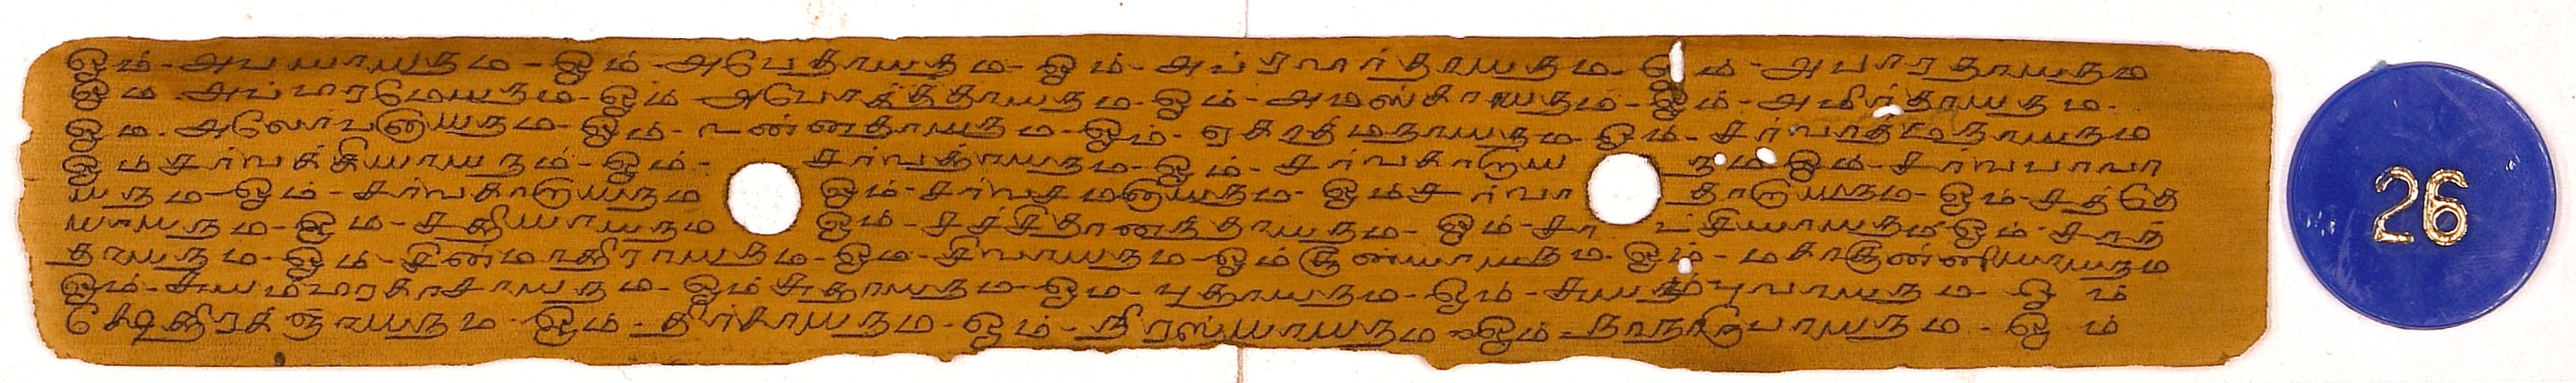 ஓம்-அபயாயநம-ஓம்-அபேதாயநம-ஓம்-அப்ரவர்தாயநம-ஓம்-அபாரதாயநம
ஓம அப்பரமேயநம-ஓம் அபோக்ததாயநம-ஓம்-அமஸ்காயநம-ஓம்-அமிர்தாயநம.
ஓம. நம-ஓம்- நம-ஓம்- ஏகாத்மநாயநம-ஓம்-சர்வாத்மநாயநம
ஓம்சர்வக்கியாயநம்-ஓம்- சர்வதாயநம-ஓம்-சர்வகாரூய நம-ஓம்-சர்வபாவா
யநம-ஓம்-சர்வகாருயநம ஓம்-சர்வசமனுயநம- ஓம்சர்வா தாருயநம-ஓம்-சத்தே
யாயநம-ஓம-சதியாயநம ஓம்-சச்சிதானந்தாயநம- ஓம்-சா ட்சியாயநம-ஓம்-சாந்
தாயநம-ஓம்-சின்மாதிராயநம-ஓம-சிவாயநம-ஓம்சூன்யாயநம-ஓம்-மகாசூன்னியாயநம
ஓம்-சுயம்பரகாசாயநம-ஓம்சுதாயநம-ஓம-புதாயநம-ஓம்-சுயம்புவாயநம-ஓம்
க்ஷேதிரக்ஞாயநம-ஓம்-தீர்காயநம-ஓம்-நிரஸ்யாயநம-ஓம்-நாநாரூபாயநம-ஓம்